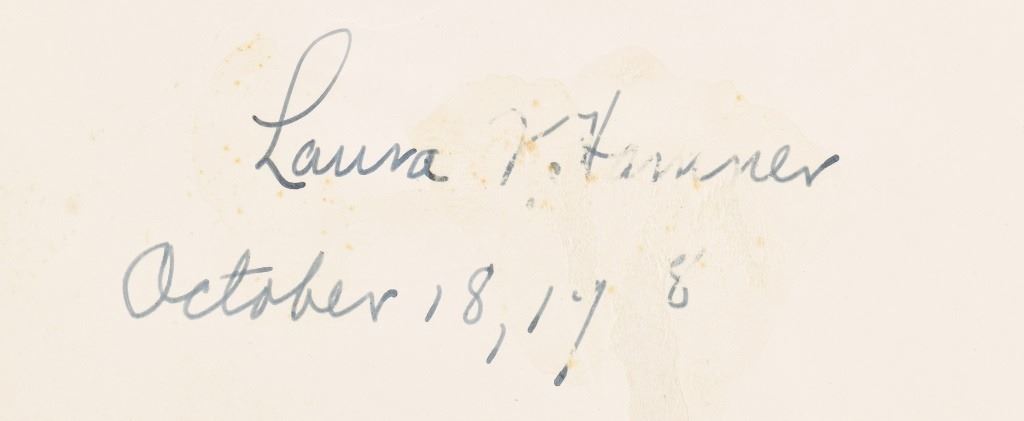 Laura V. Hamner
October 18, 19 8